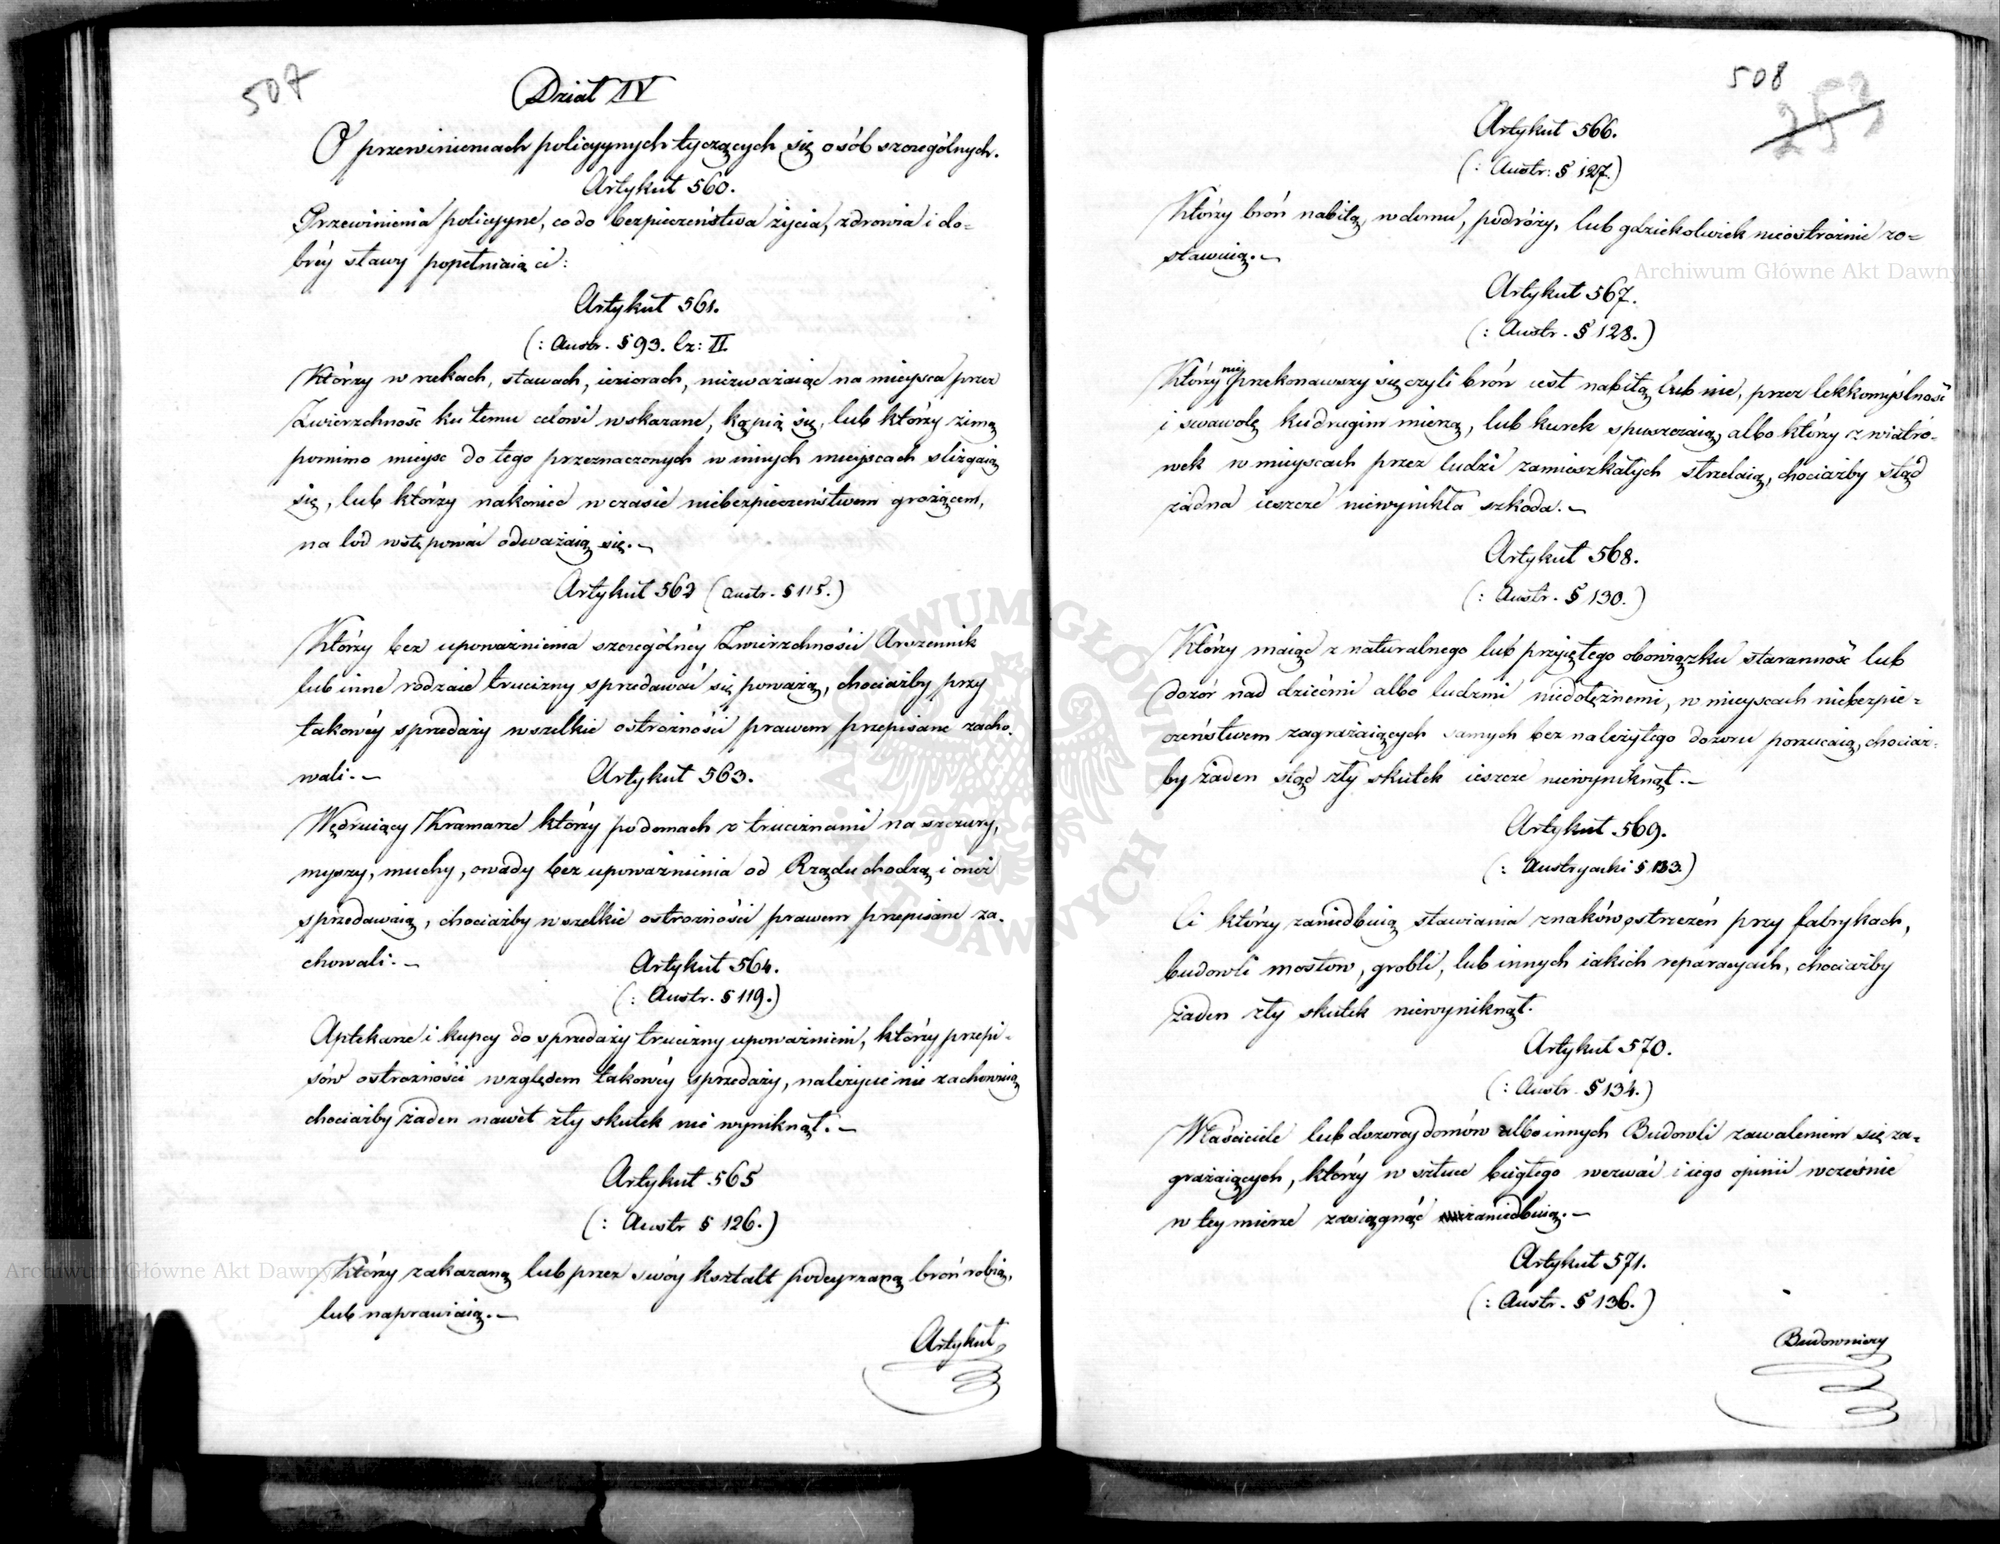 507
Dział IV
O przewinieniach policyynych tyczących się osób szczególnych.
Artykuł 560.
Przewinienia policyyne, co do bezpieczeństwa życia, zdrowia i do=
bréy sławy popełniaią ci:
Artykuł 561.
(: Austr. § 93. lz: II.
Którzy w rzekach, stawach, ieziorach, niezważaiąc na mieysca przez
Zwierzchność ku temu celowi wskazane, kąpią się, lub którzy zimą
pomimo mieysc do tego przeznaczonych w innych mieyscach ślizgaią
się, lub którzy nakoniec w czasie niebezpieczeństwem grożącem,
na lód wstępować odważaią się.—
Artykuł 562 (Austr. § 115.)
Którzy bez upoważnienia szczególnéy Zwierzchności Arszennik
lub inne rodzaie trucizny sprzedawać się poważą, chociażby przy
takowéy sprzedaży wszelkie ostrożności prawem przepisane zacho.
wali.—
Artykuł 563.
Wędruiący Kramarze którzy po domach z truciznami na szczury,
myszy, muchy, owady bez upoważnienia od Rządu chodzą i oneż
sprzedawaią, chociażby wszelkie ostrożności prawem przepisane za.
chowali.—
Artykuł 564.
(: Austr. § 119.)
Aptekarze i kupcy do sprzedaży trucizny upoważnieni, którzy przepi-
sów ostrożności względem takowéy sprzedaży, należycie nie zachowuią
chociażby żaden nawet zły skutek nie wyniknął.—
Artykuł 565
(: Austr § 126.)
Którzy zakazaną lub przez swóy kształt podeyrzaną broń robią,
lub naprawiaią.—
Artykuł
508
253
Artykuł 566.
(: Austr: § 127.)
Którzy broń nabitą, w domu, podróży, lub gdziekolwiek nieostrożnie zo=
stawuią.—
Artykuł 567.
(: Austr. § 128.)
Którzy nie przekonawszy się czyli broń iest nabitą lub nie, przez lekkomyślność
i swawolę ku drugim mierzą, lub kurek spuszczaią, albo którzy z wiatró-
wek w mieyscach przez ludzi zamieszkałych strzelaią, chociażby stąd
żadna ieszcze niewynikła szkoda.—
Artykuł 568.
(: Austr. § 130.)
Którzy maiąc z naturalnego lub przyiętego obowiązku staranność lub
dozór nad dziećmi albo ludźmi niedołężnemi, w mieyscach niebezpie=
czeństwem zagrażaiących samych bez należytego dozoru porzucaią, chociaż-
by żaden stąd zły skutek ieszcze niewyniknął.—
Artykuł 569.
(: Austryacki § 133.)
Ci którzy zaniedbuią stawiania znaków ostrzeżeń przy fabrykach,
budowli mostow, grobli, lub innych iakich reparacyach, chociażby
żaden zły skutek niewyniknął.
Artykuł 570.
(: Austr. § 134.)
Właściciele lub dozorcy domów albo innych Budowli zawaleniem się za=
grażaiących, którzy w sztuce biegłego wezwać i iego opinii wcześnie
w tey mierze zasiągnąć zaniedbuią.—
Artykuł 571.
(: Austr. § 136.)
Budowniczy
Archiwum Główne Akt Dawnych
Archiwum Główne Akt Dawnych
ARCHIWUM GŁÓWNE AKT DAWNYCH